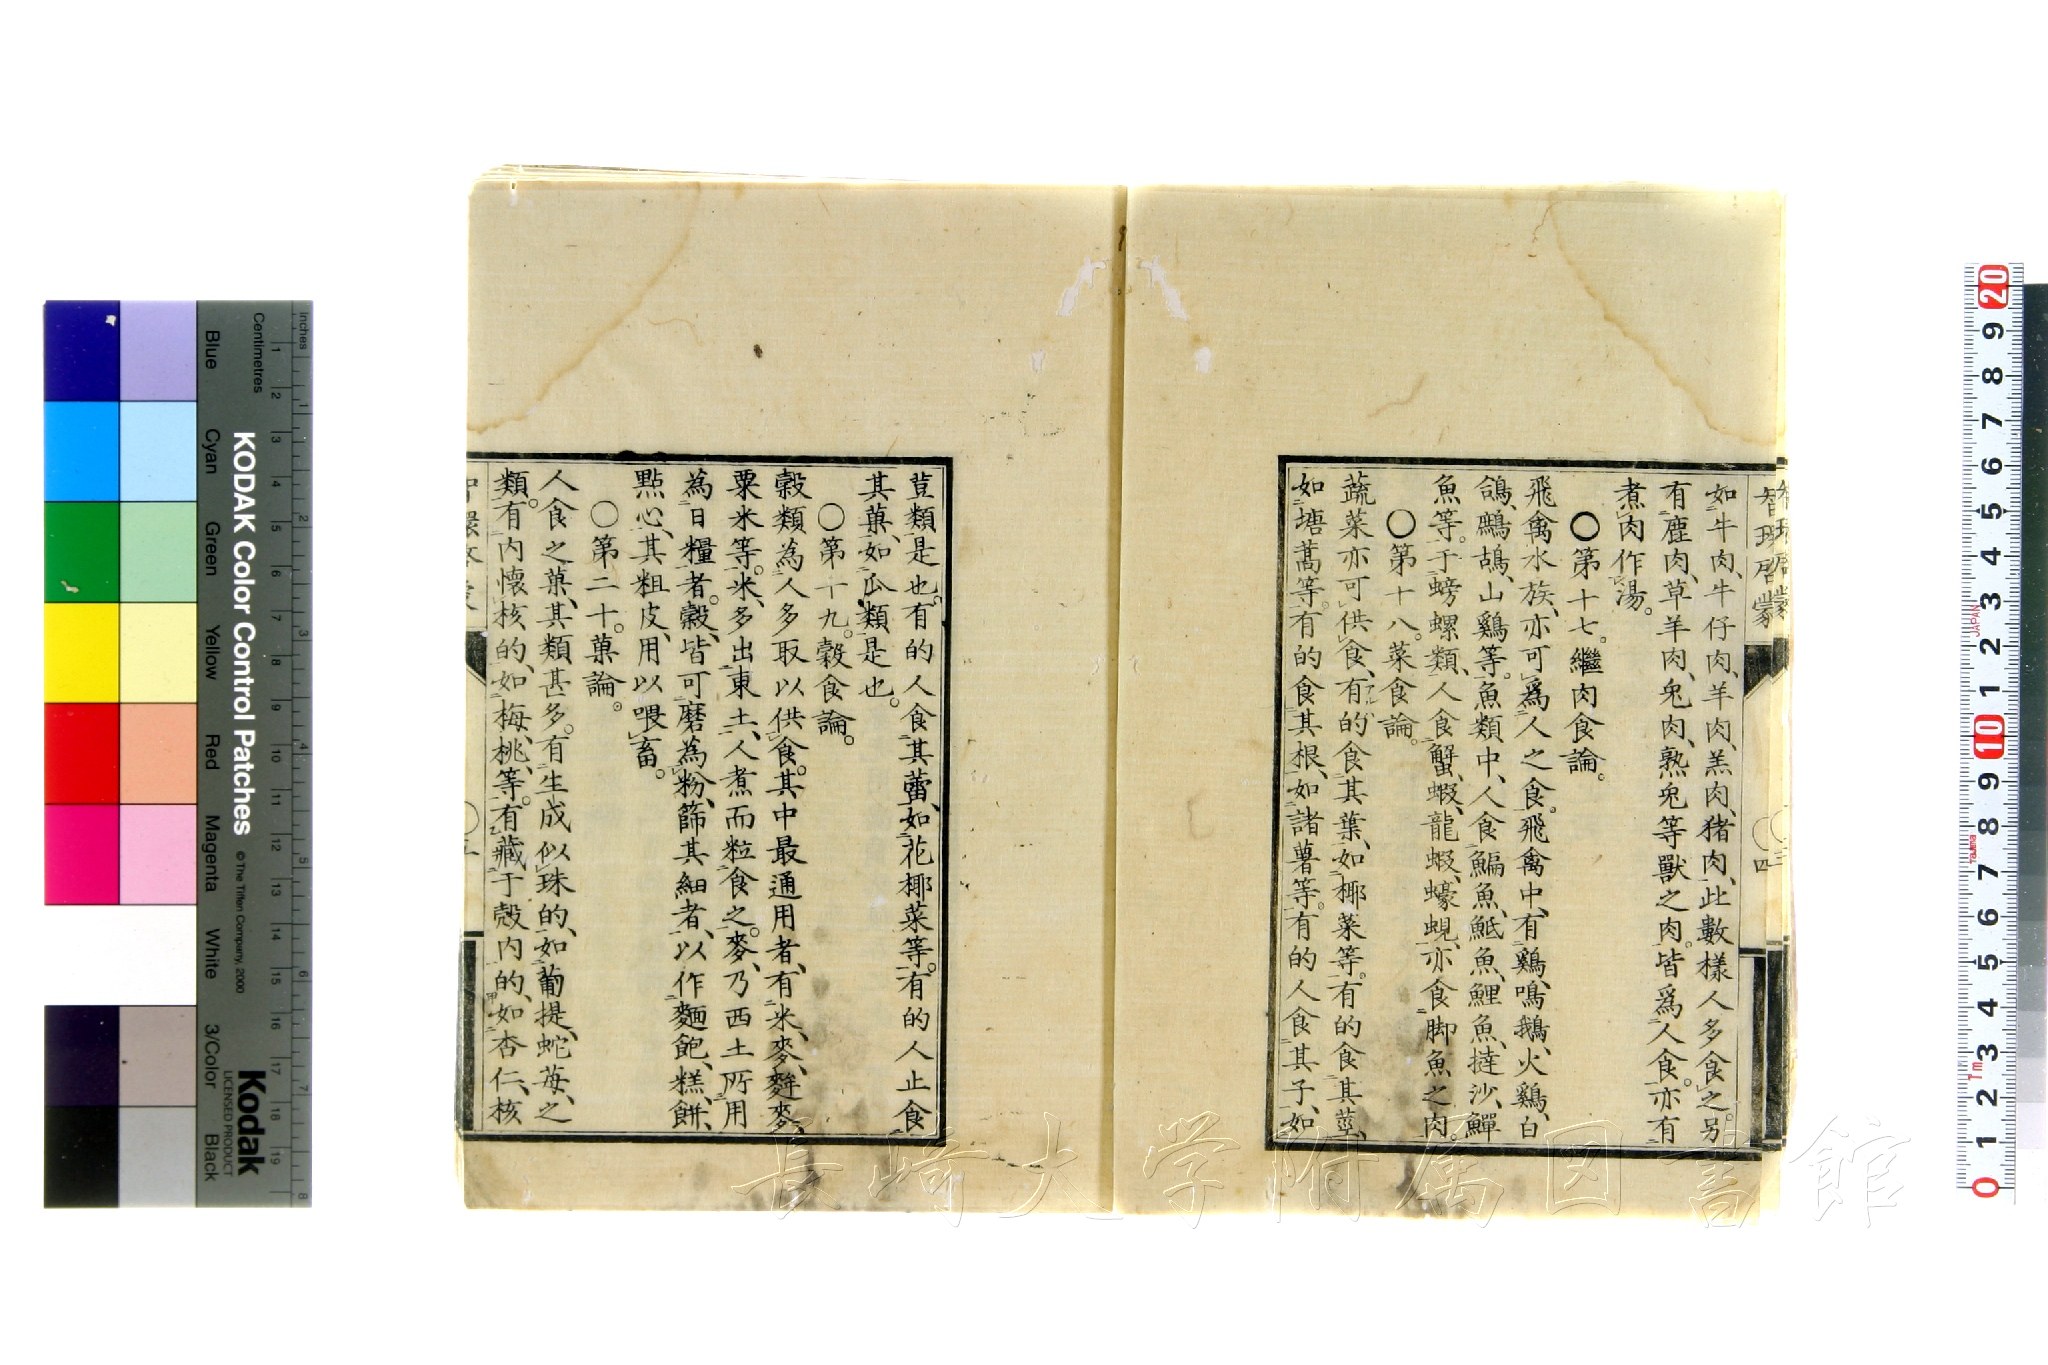 智環啓蒙
四
如牛肉、牛仔肉、羊肉、羔肉、猪肉、此數樣人多食之。另
有塵肉、草羊肉、兔肉、熟兔等獸之肉。皆爲人食。亦有
煮肉作湯。
〇第十七。繼肉食論。
飛禽水族、亦可爲人之食。飛禽中、有鷄、鳴鵝、火鷄、白
鴿、鷓鴣、山鷄等。魚類中、人食鯿魚、魠魚、鯉魚、撻沙、鱓
魚等。于螃螺類、人食蟹、蝦、龍蝦、蠔蜆、亦食脚魚之肉。
〇第十八。菜食論。
蔬菜亦可供食、有的食其葉、如椰菜等。有的食其莖、
如塘蒿等。有的食其根、如諸薯等。有的人食其子、如
荳類是也。有的人食其蕾、如花椰菜等。有的人止食
其菓、如瓜類是也。
〇第十九。穀食論。
穀類為人多取以供食。其中最通用者、有米、麥、麰麥、
粟米等。米、多出東土、人煮而粒食之。麥、乃西土所用
為日糧者。穀、皆可磨為粉、篩其細者、以作麵飽、糕、餅、
點心、其粗皮、用以喂畜。
〇第二十。菓論。
人食之菓、其類甚多。有生成似珠的、如葡提、蛇苺、之
類。有内懷核的、如梅、桃、等。有藏于殼内的、如杏仁、核
長崎大学附属図書館
Inches
Centimetres
KODAK Color Control Patches
© The Tiffen Company, 2000
Kodak
LICENSED PRODUCT
Blue
Cyan
Green
Yellow
Red
Magenta
White
3/Color
Black
1 2 3 4 5 6 7 8 9 10 11 12 13 14 15 16 17 18 19
1 2 3 4 5 6 7 8
20 9 8 7 6 5 4 3 2 1 10 9 8 7 6 5 4 3 2 1 0
JAPAN
Tajima